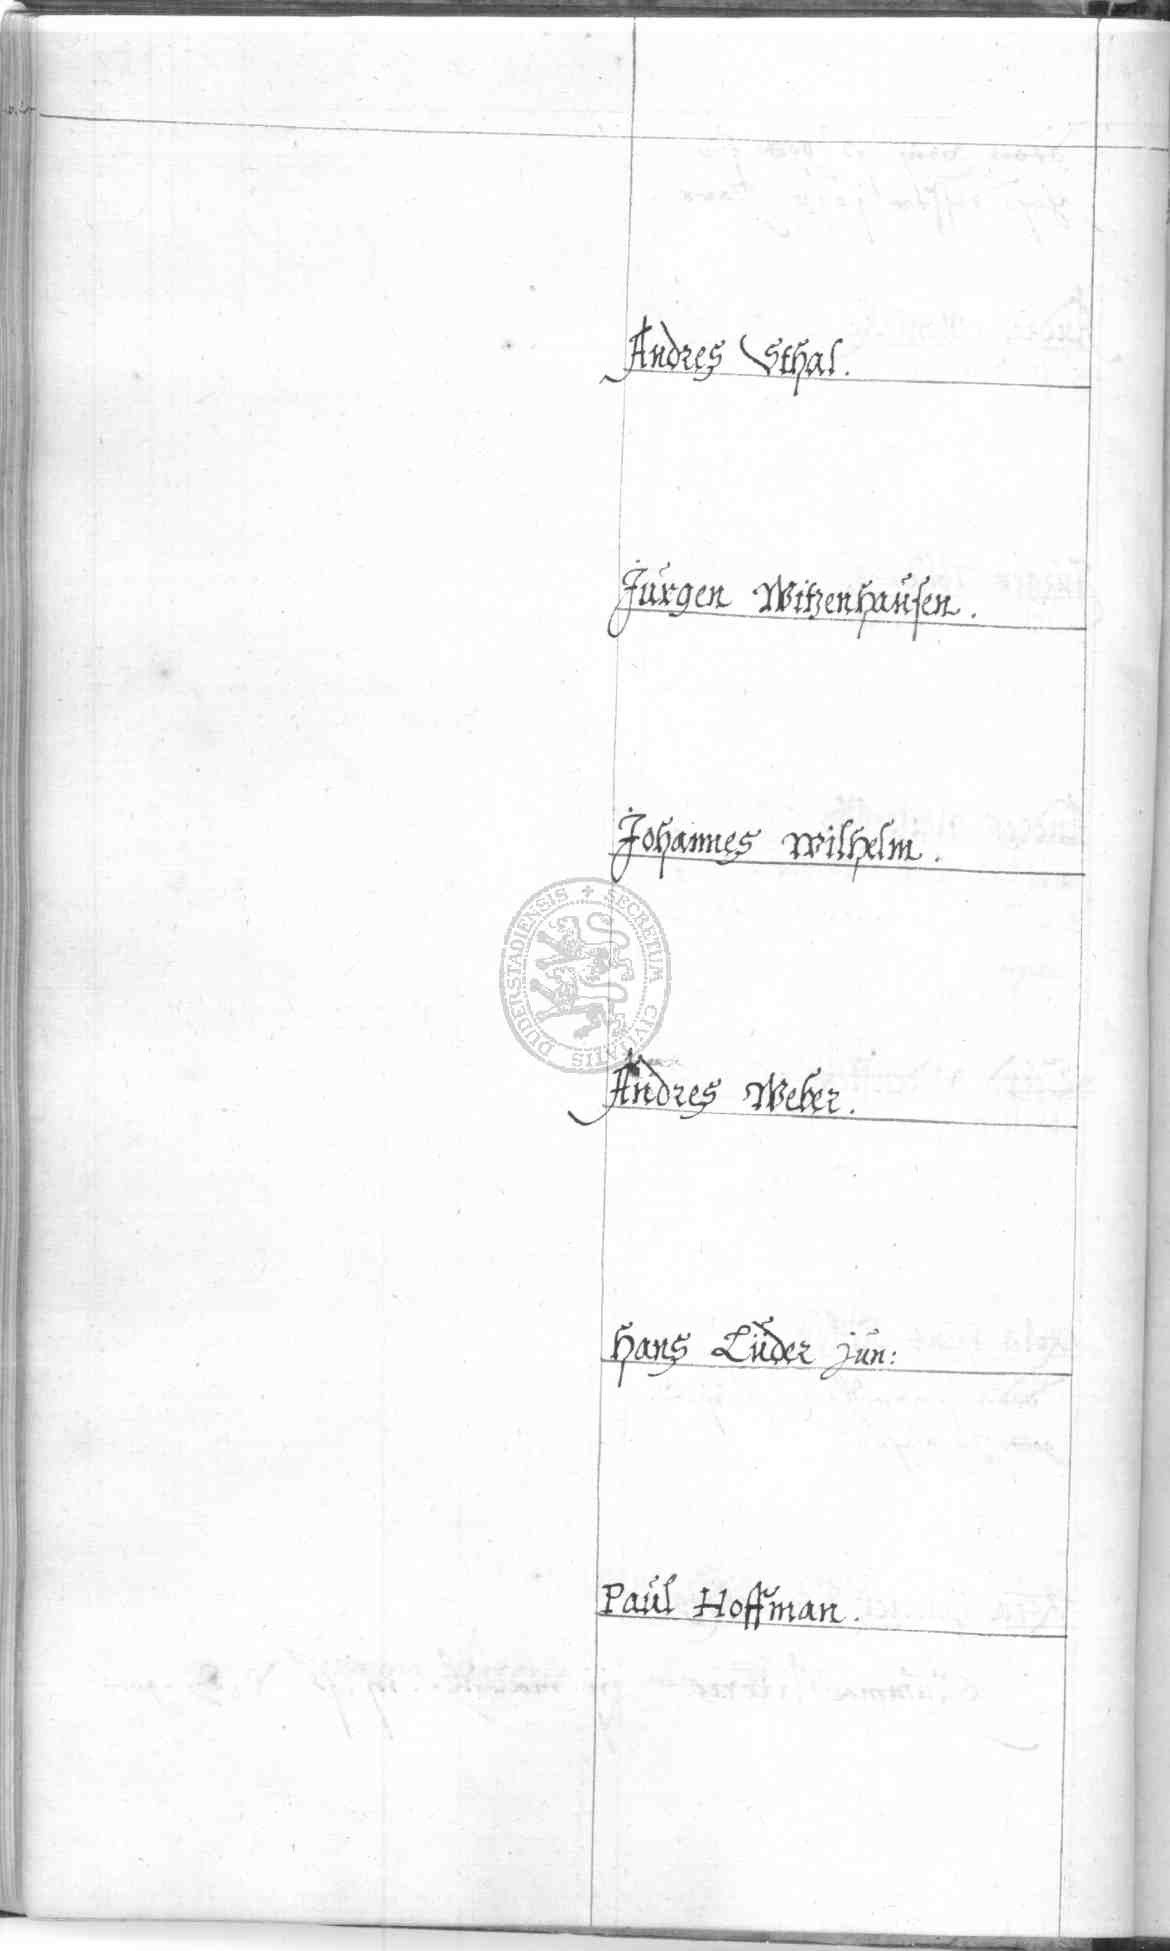 Andres Sthal.
Jürgen Witzenhausen.
Johannes Wilhelm.
SECRETUM CIVITATIS DUDERSTADIENSIS
Andres Weber.
Hans Lüder jun:
Paul Hoffman.